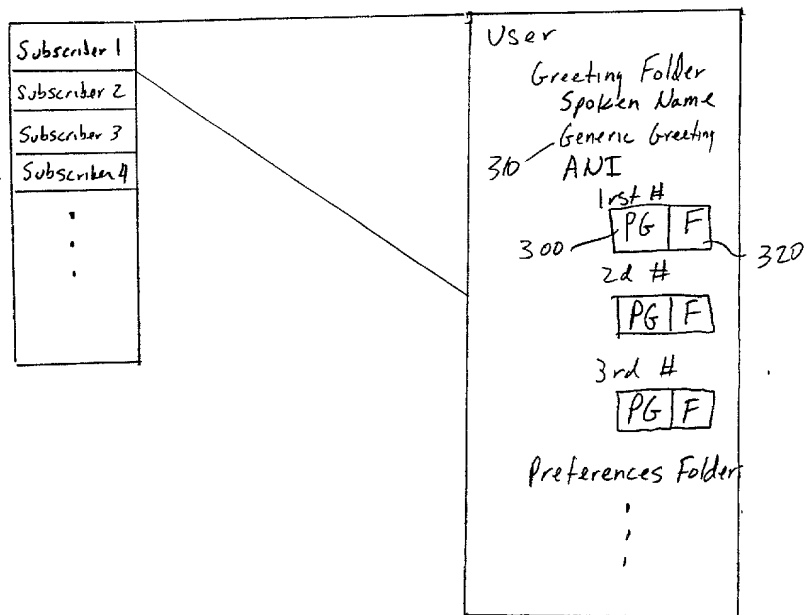 Subscriber 1
Subscriber 2
Subscriber 3
Subscriber 4
User
Greeting Folder
Spoken Name
Generic Greeting
310
ANI
1rst #
300 PG F 320
2d #
PG F
3rd #
PG F
Preferences Folder